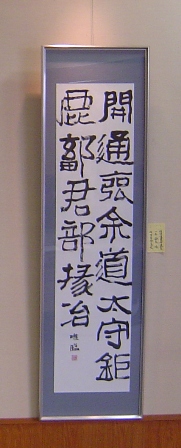 開通褒余道太守鉅
鹿鄐君部掾冶
臨